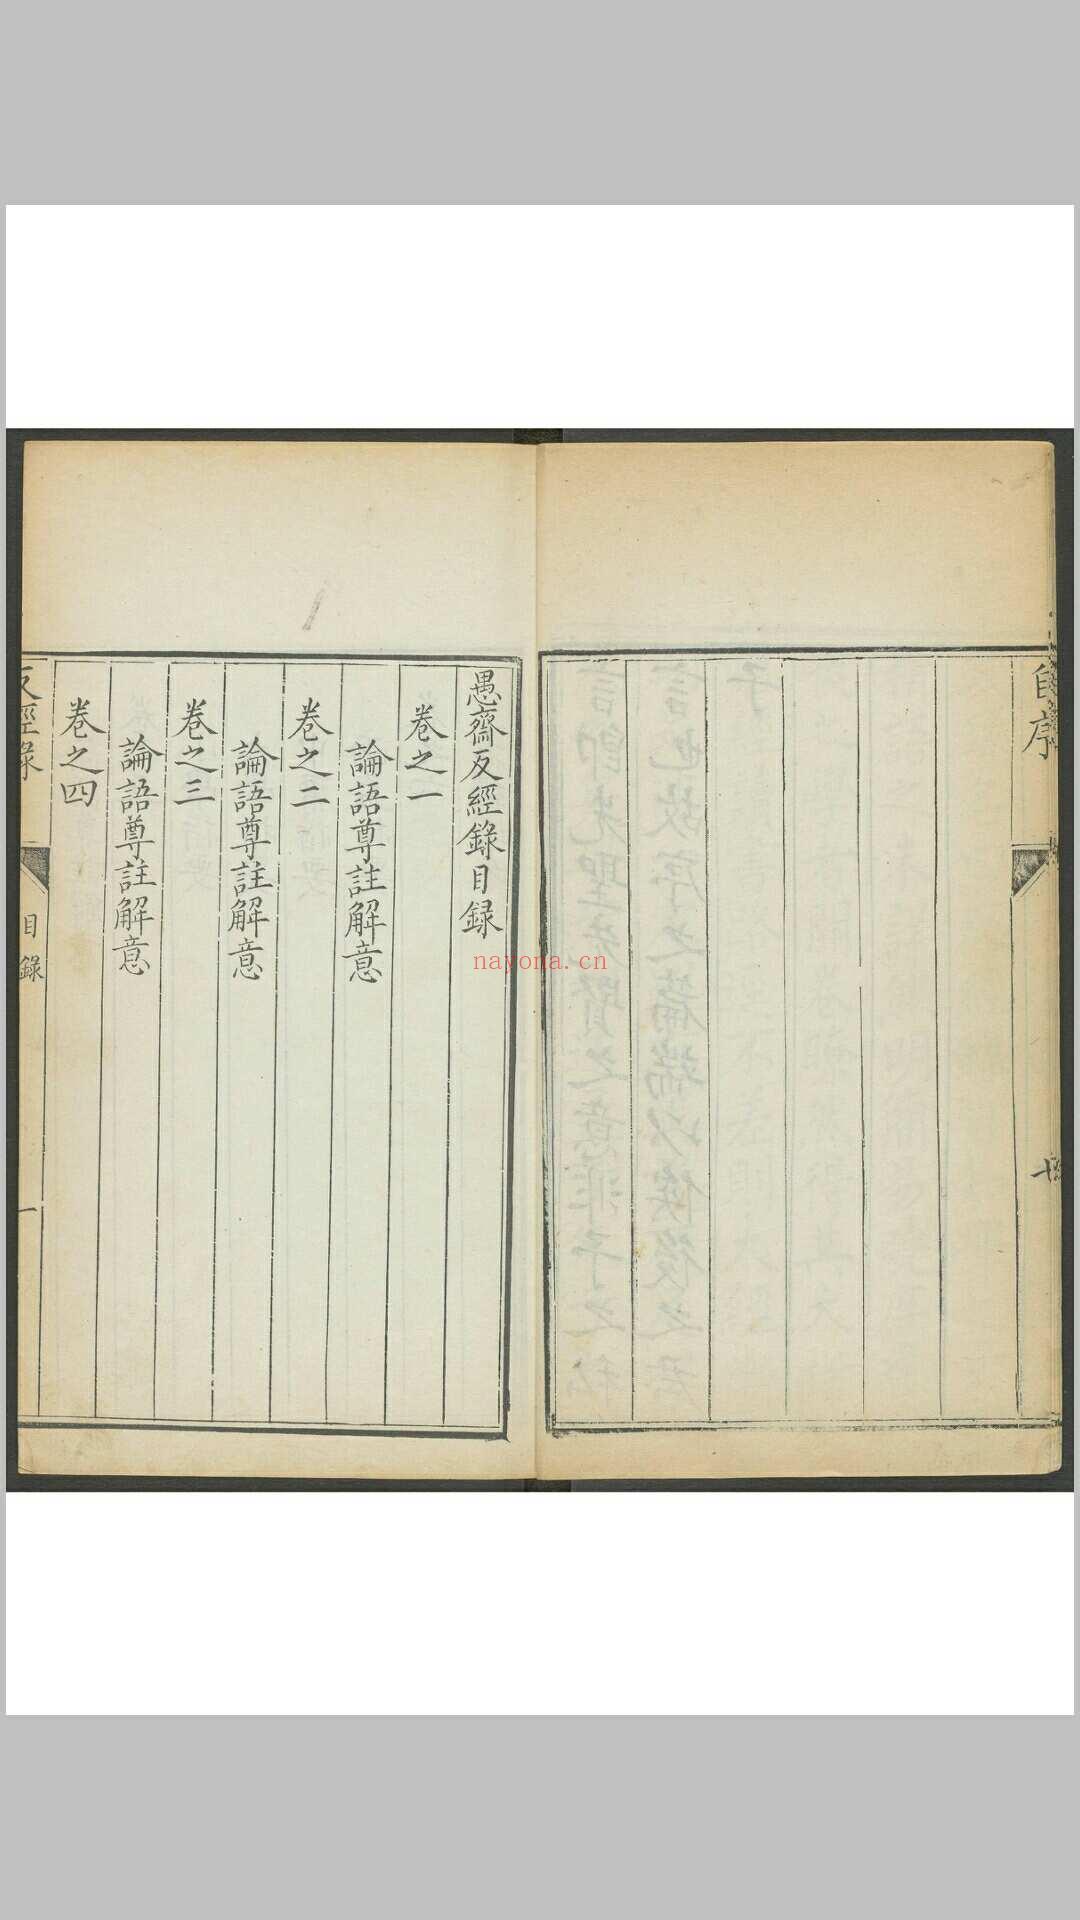 自序
愚齋反經錄目録
卷之一
論語尊註解意
卷之二
論語尊註解意
卷之三
論語尊註解意
卷之四
反經錄
目錄
一
nayona.cn